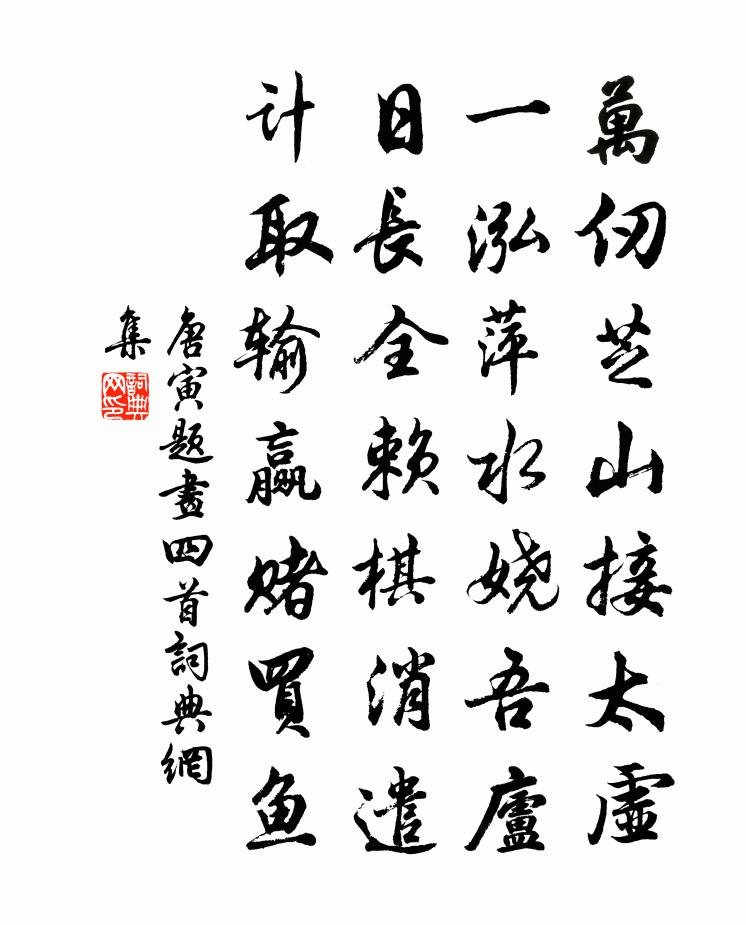 萬仞芝山接太虛
一泓萍水娆吾廬
日長全赖棋消遣
计取输赢赌買魚
唐寅题畫四首詞典網
集
詞典網印